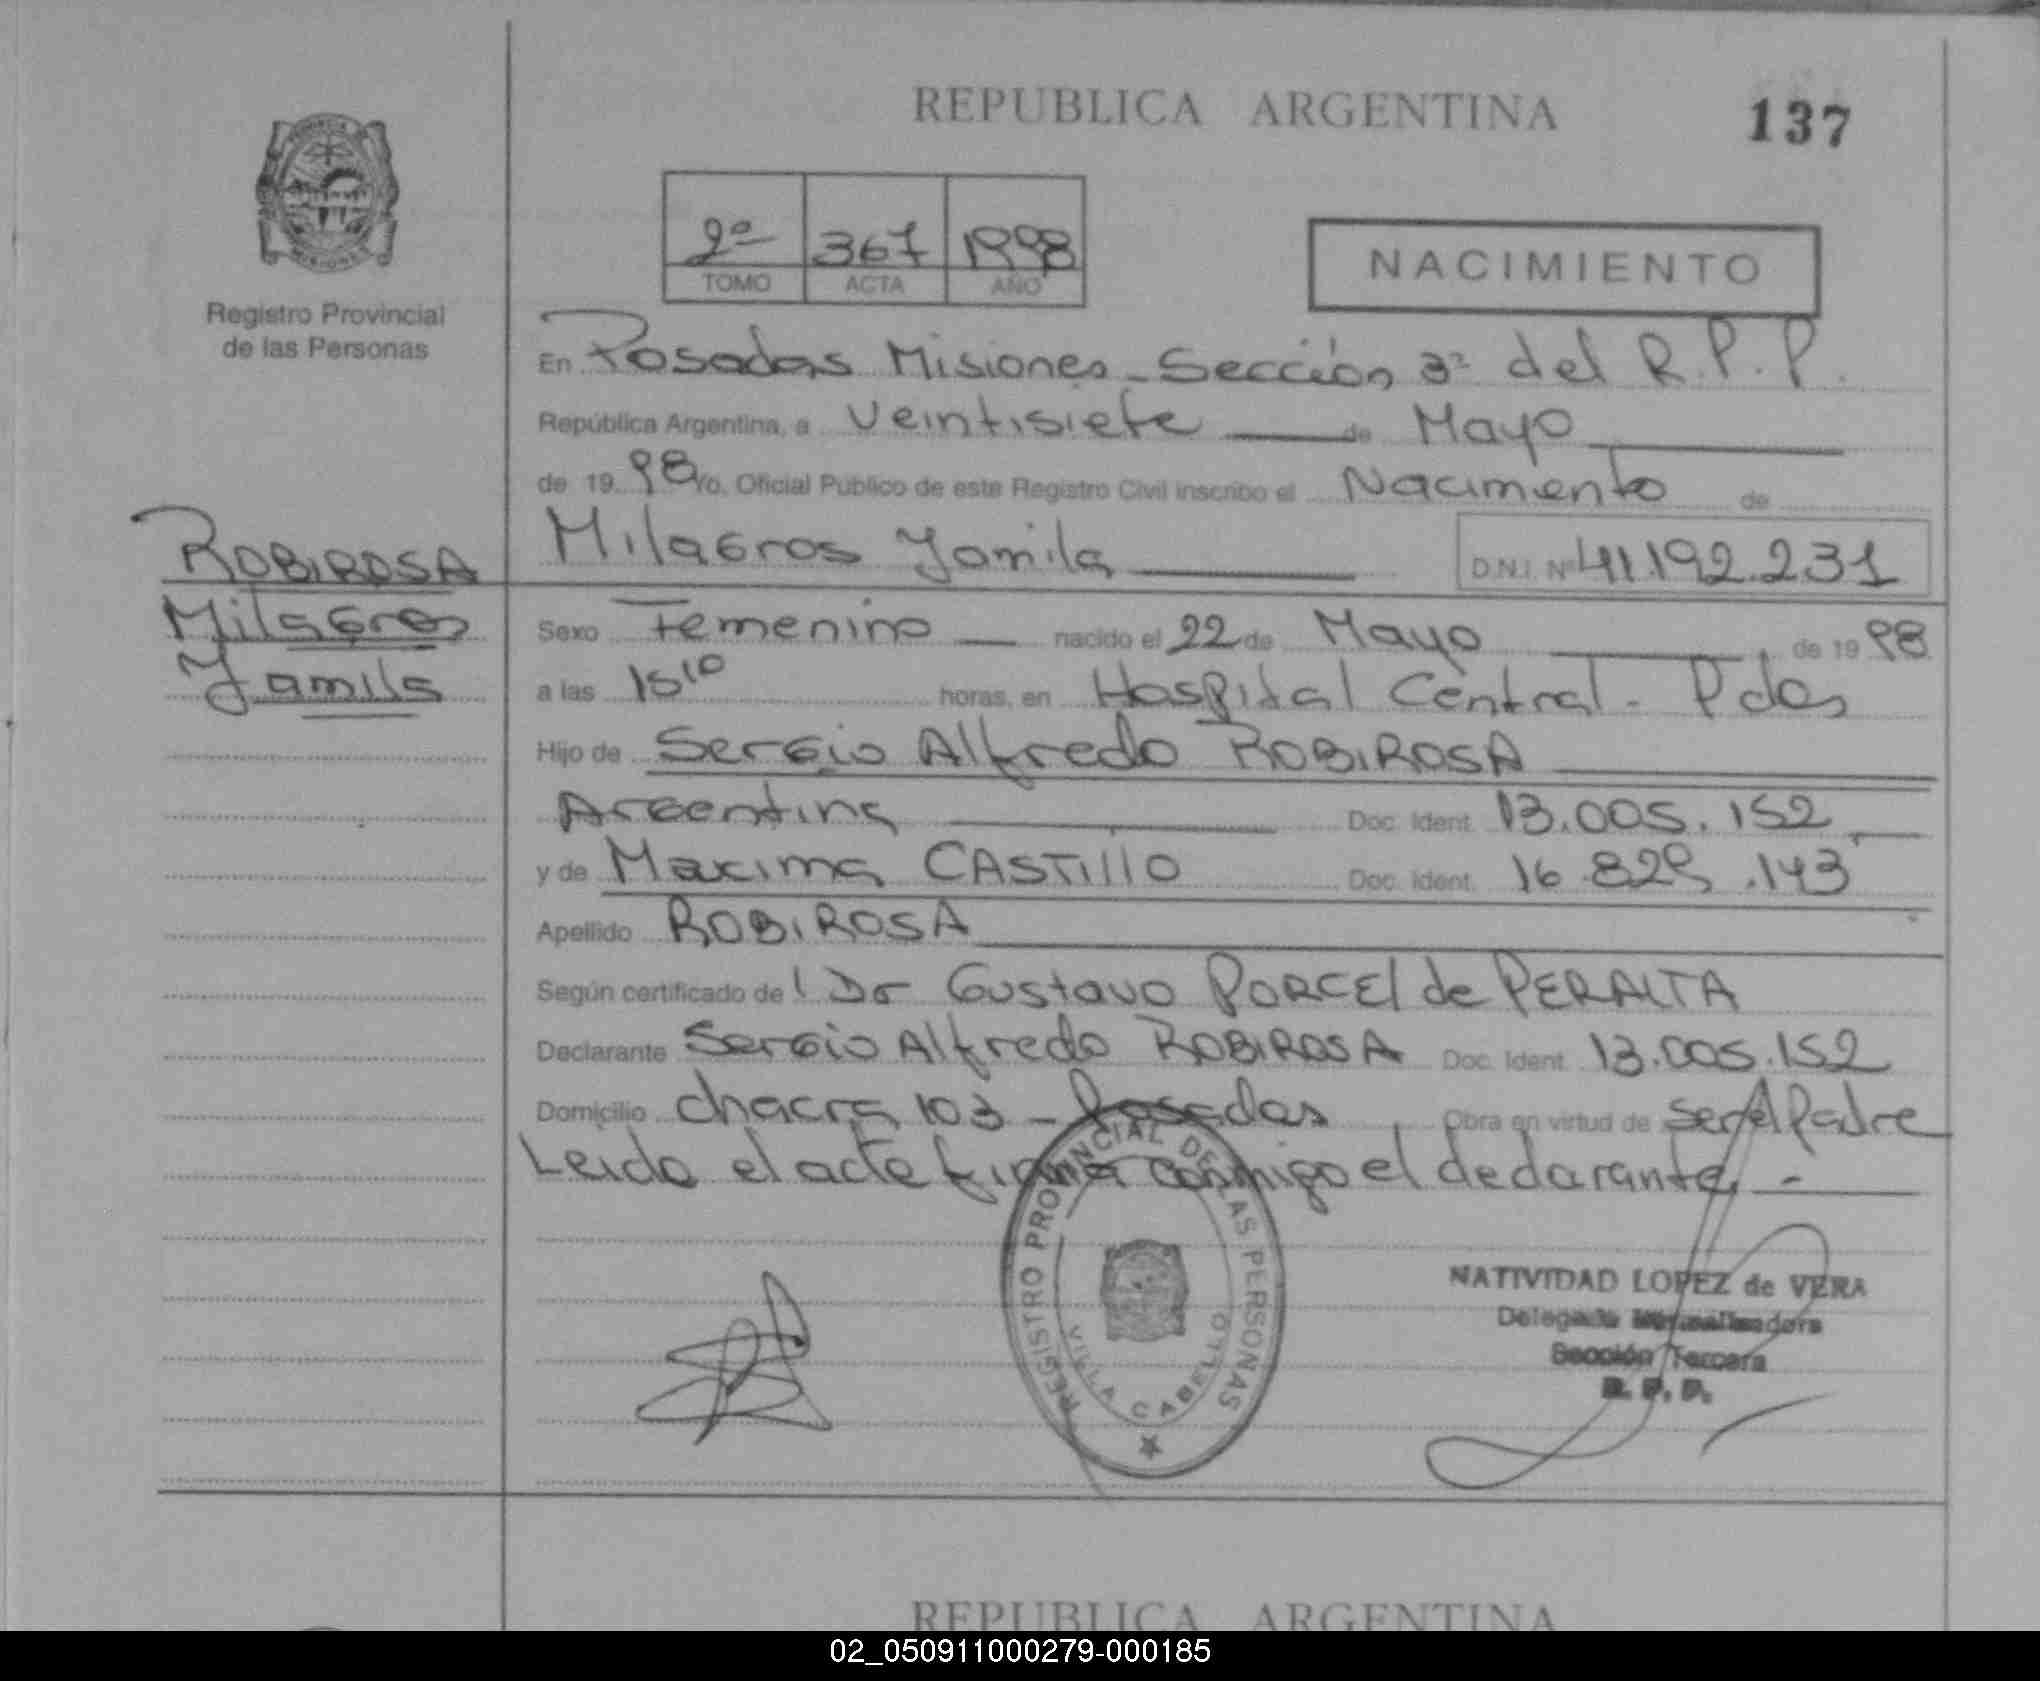 REPUBLICA ARGENTINA
137
2º 367 1998
TOMO ACTA AÑO
NACIMIENTO
Registro Provincial
de las Personas
En Posadas Misiones - Sección 3ª del R.P.P.
República Argentina, a Veintisiete de Mayo
de 19 98 Yo, Oficial Público de este Registro Civil inscribo el Nacimiento de
Milagros Yamila D.N.I. Nº 41.192.231
ROBIROSA
Milagros
Yamila
Sexo Femenino nacido el 22 de Mayo de 19 98
a las 15¹⁰ horas, en Hospital Central - Pdas
Hijo de Sergio Alfredo ROBIROSA
Argentina Doc. Ident. 13.005.152
y de Maxima CASTILLO Doc. Ident. 16.829.143
Apellido ROBIROSA
Según certificado de l Dr Gustavo PORCEL de PERALTA
Declarante Sergio Alfredo ROBIROSA Doc. Ident. 13.005.152
Domicilio chacra 103 - Posadas Obra en virtud de ser el Padre
Leido el acta firma conmigo el declarante -
REGISTRO PROVINCIAL DE LAS PERSONAS
VILLA CABELLO
NATIVIDAD LOPEZ de VERA
Sección Tercera
R. P. P.
REPUBLICA ARGENTINA
02_050911000279-000185